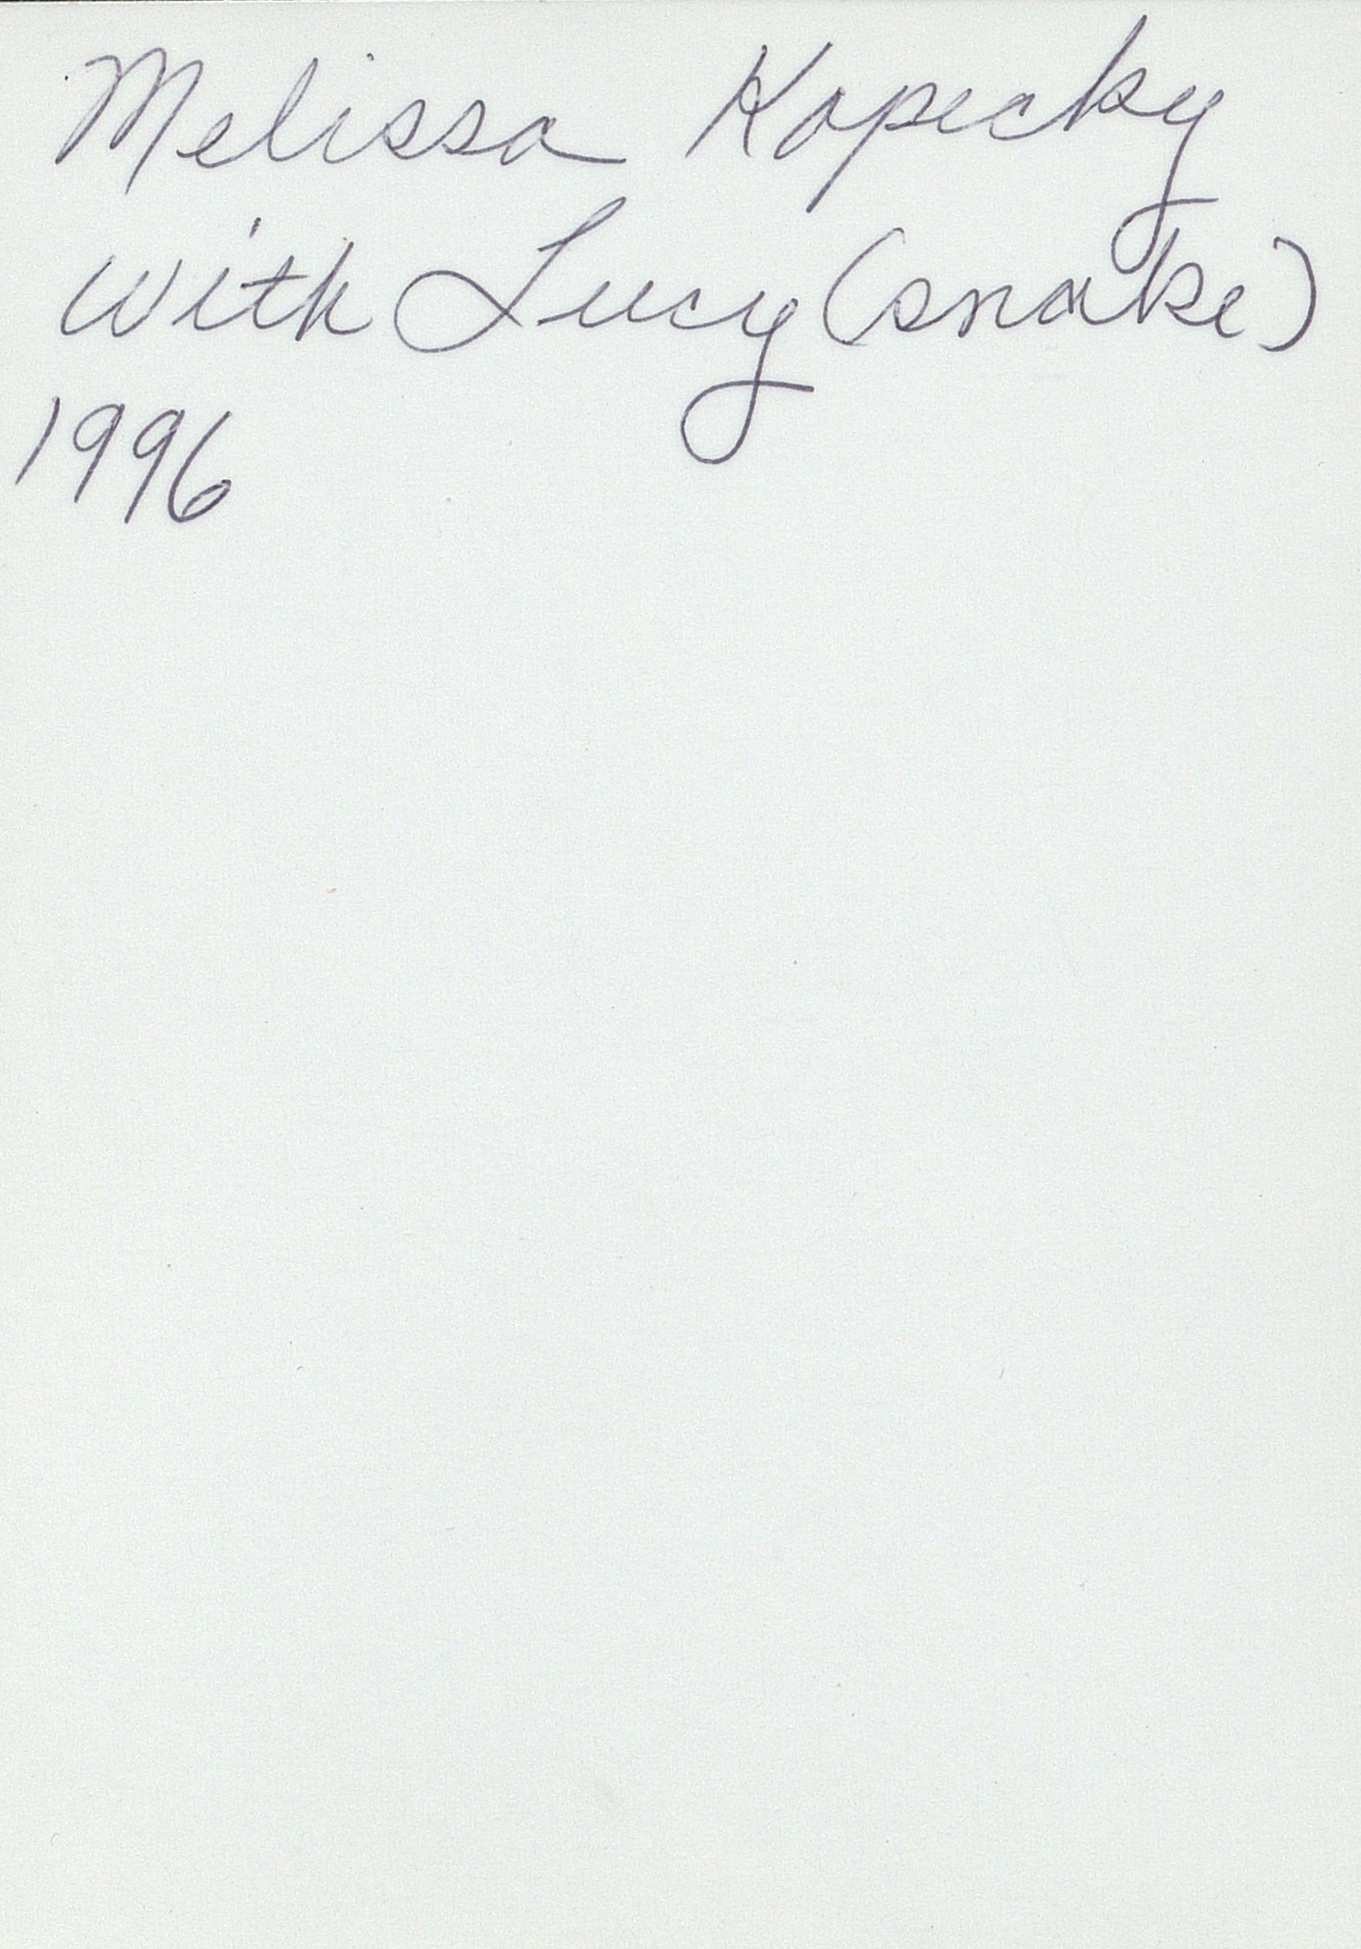 Melissa Kopecky
with Lucy (snake)
1996